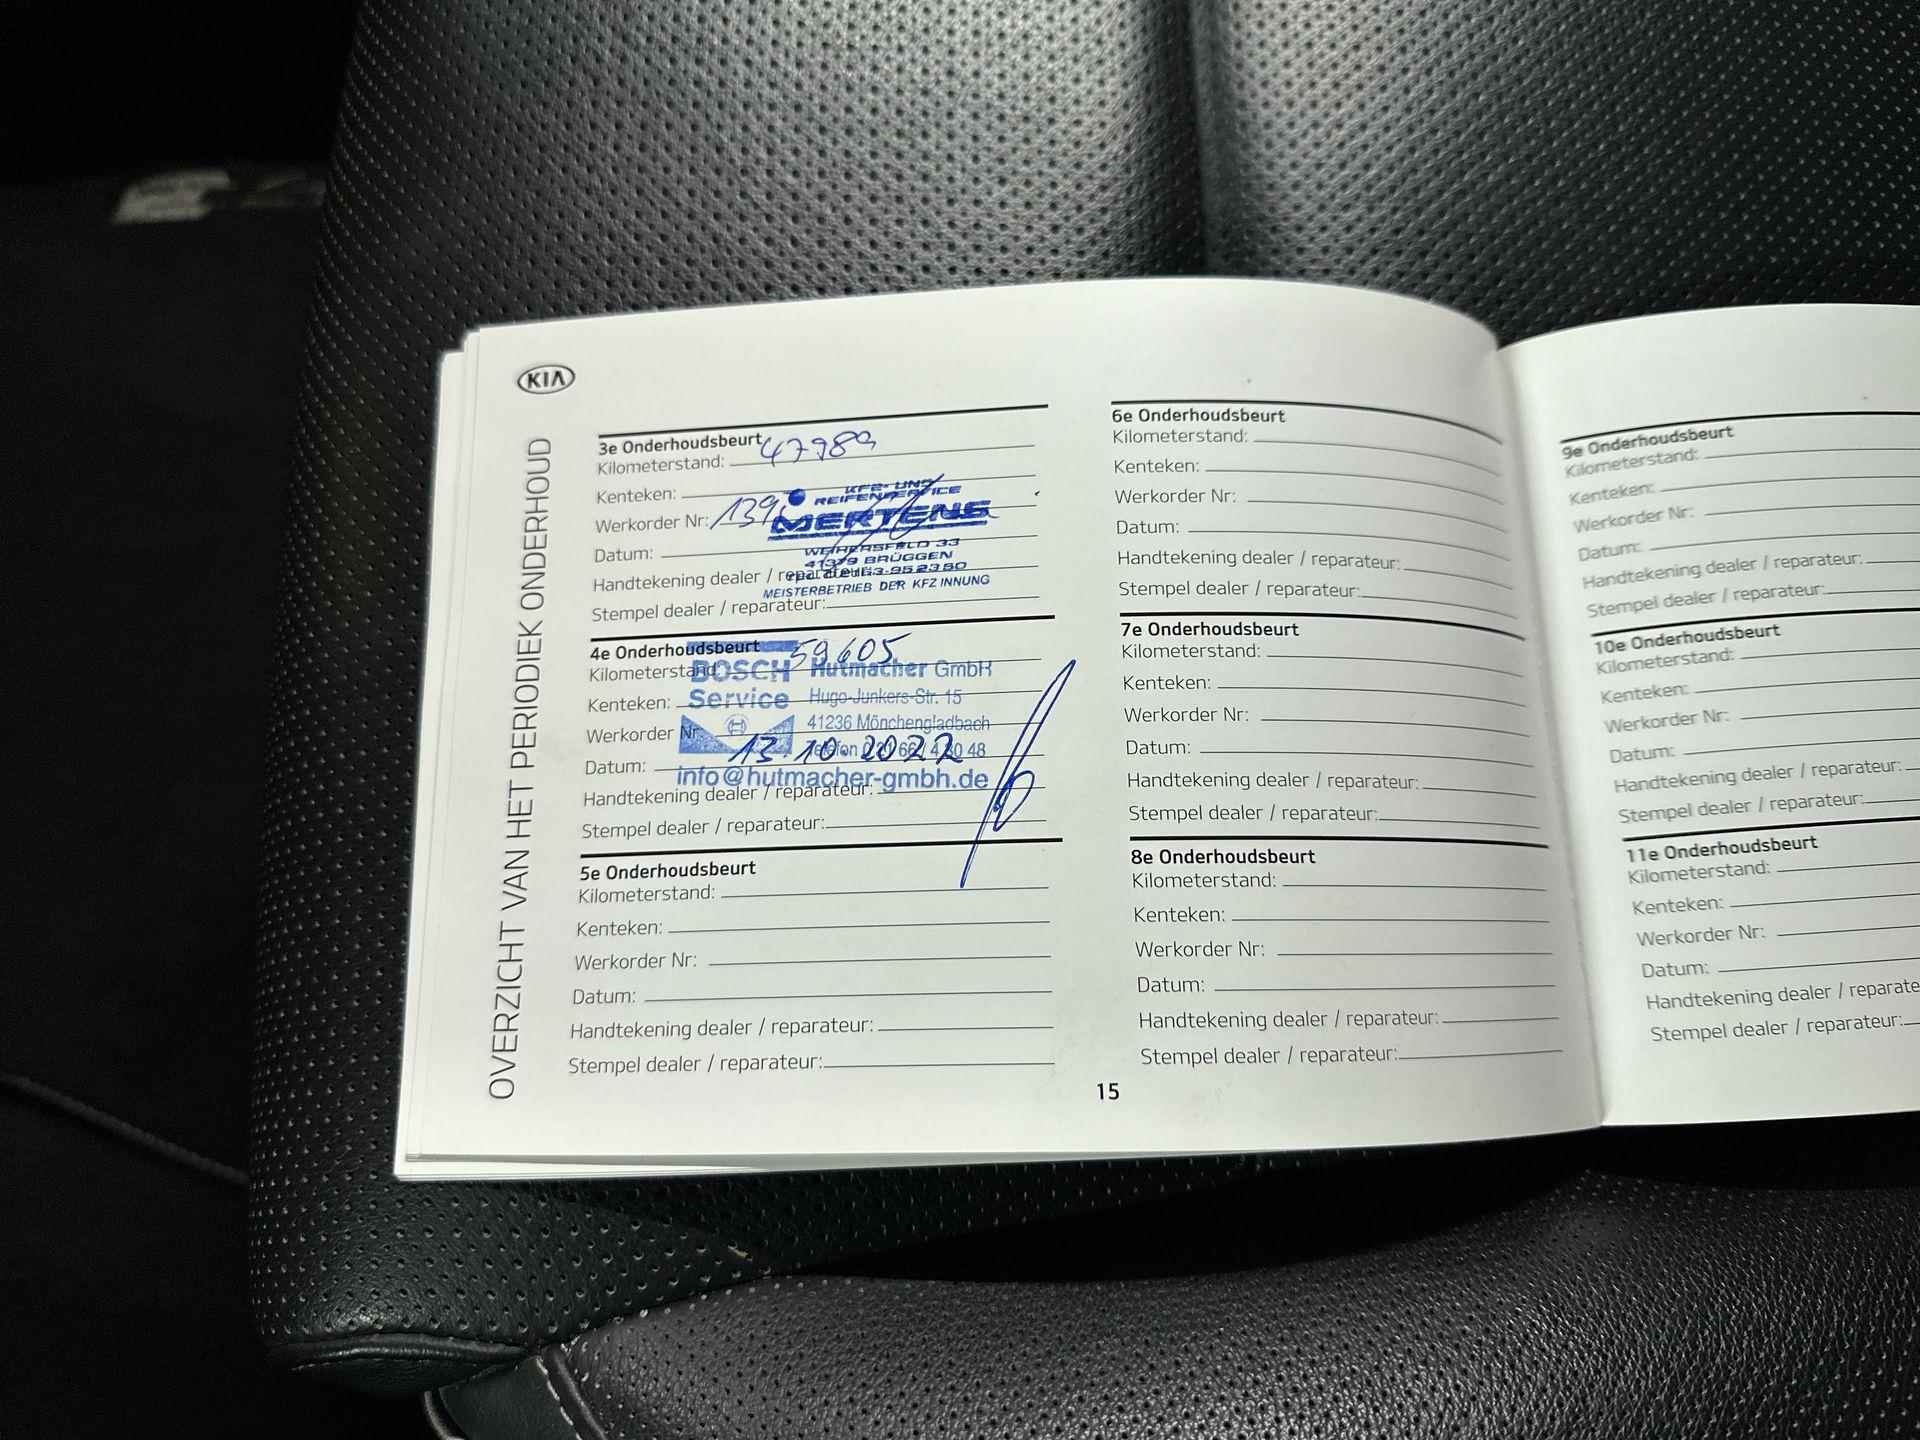 KIA
OVERZICHT VAN HET PERIODIEK ONDERHOUD
3e Onderhoudsbeurt
Kilometerstand: 47989
Kenteken:
Werkorder Nr: 139
Datum:
Handtekening dealer / reparateur:
Stempel dealer / reparateur:
KFZ- UND
REIFENSERVICE
MERTENS
WEIHERSFELD 33
41379 BRÜGGEN
MEISTERBETRIEB DER KFZ INNUNG
4e Onderhoudsbeurt
Kilometerstand 59605
Kenteken:
Werkorder Nr
Datum: 13.10.2022
Handtekening dealer / reparateur:
Stempel dealer / reparateur:
BOSCH
Service
Hutmacher GmbH
Hugo-Junkers-Str. 15
41236 Mönchengladbach
Telefon
info@hutmacher-gmbh.de
5e Onderhoudsbeurt
Kilometerstand:
Kenteken:
Werkorder Nr:
Datum:
Handtekening dealer / reparateur:
Stempel dealer / reparateur:
6e Onderhoudsbeurt
Kilometerstand:
Kenteken:
Werkorder Nr:
Datum:
Handtekening dealer / reparateur:
Stempel dealer / reparateur:
7e Onderhoudsbeurt
Kilometerstand:
Kenteken:
Werkorder Nr:
Datum:
Handtekening dealer / reparateur:
Stempel dealer / reparateur:
8e Onderhoudsbeurt
Kilometerstand:
Kenteken:
Werkorder Nr:
Datum:
Handtekening dealer / reparateur:
Stempel dealer / reparateur:
15
9e Onderhoudsbeurt
Kilometerstand:
Kenteken:
Werkorder Nr:
Datum:
Handtekening dealer / reparateur:
Stempel dealer / reparateur:
10e Onderhoudsbeurt
Kilometerstand:
Kenteken:
Werkorder Nr:
Datum:
Handtekening dealer / reparateur:
Stempel dealer / reparateur:
11e Onderhoudsbeurt
Kilometerstand:
Kenteken:
Werkorder Nr:
Datum:
Handtekening dealer / reparate
Stempel dealer / reparateur: